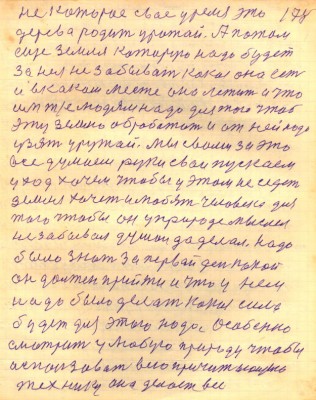 не которое свое время это 178
дерево родит урожай. А потом
еще земля которую надо будет
за ней не забыват какая она ест
и в каком месте она лежит и что
им же людям надо для того чтоб
эту землю обработат и от ней надо
взят урожай. Мы своим за это
все думаем руки свои пускаем
уход хочем чтобы у этом не седет
земля хочет и любят человека для
того чтобы он у природе мыслил
не забывал душою да делал. надо
было знат за первай ден какой
он должен прийти и что у нем
надо было делат какая сила
будет для этого надо. Особенно
смотрит у любую природу чтобы
использоват всю причитающию
технику она делает все